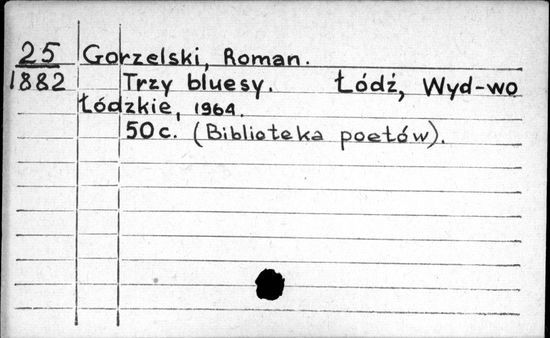 25 Gorzelski, Roman.
1882 Trzy bluesy. Łódź, Wyd-wo
Łódzkie, 1964.
50 c. (Biblioteka poetów).